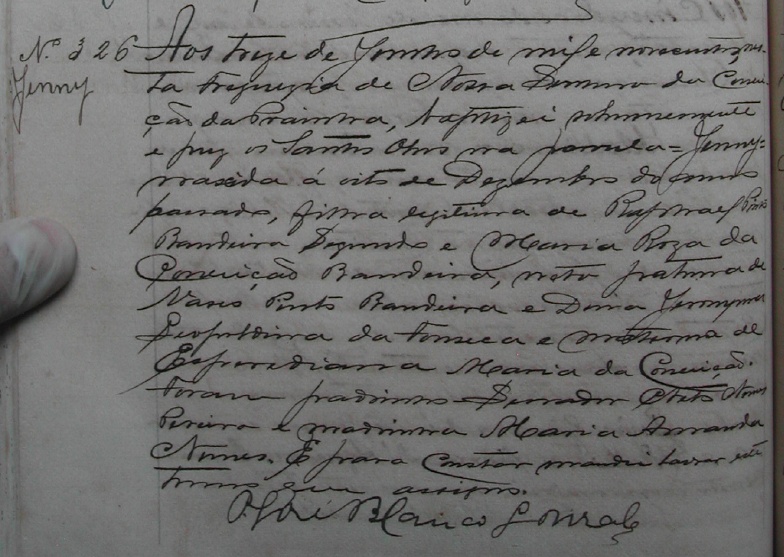 Nº 326 Aos treze de Junho de mil e novecentos, nes-
Jenny
ta freguezia de Nossa Senhora da Concei-
ção da Prainha, baptizei solemnemente
e puz os Santos Oleos na parvula = Jenny =
nascida á oito de Dezembro do anno
passado, filha legitima de Raphael Pinto
Bandeira Segundo e Maria Roza da
Conceição Bandeira, neta paterna de
Pinto Bandeira e Dona
Leopoldina da Fonseca e materna de
Maria da Conceição.
Foram padrinhos Nunes
Pereira e madrinha Maria Amanda
Nunes. E para constar mandei lavrar este
termo que assigno.
José Blanco